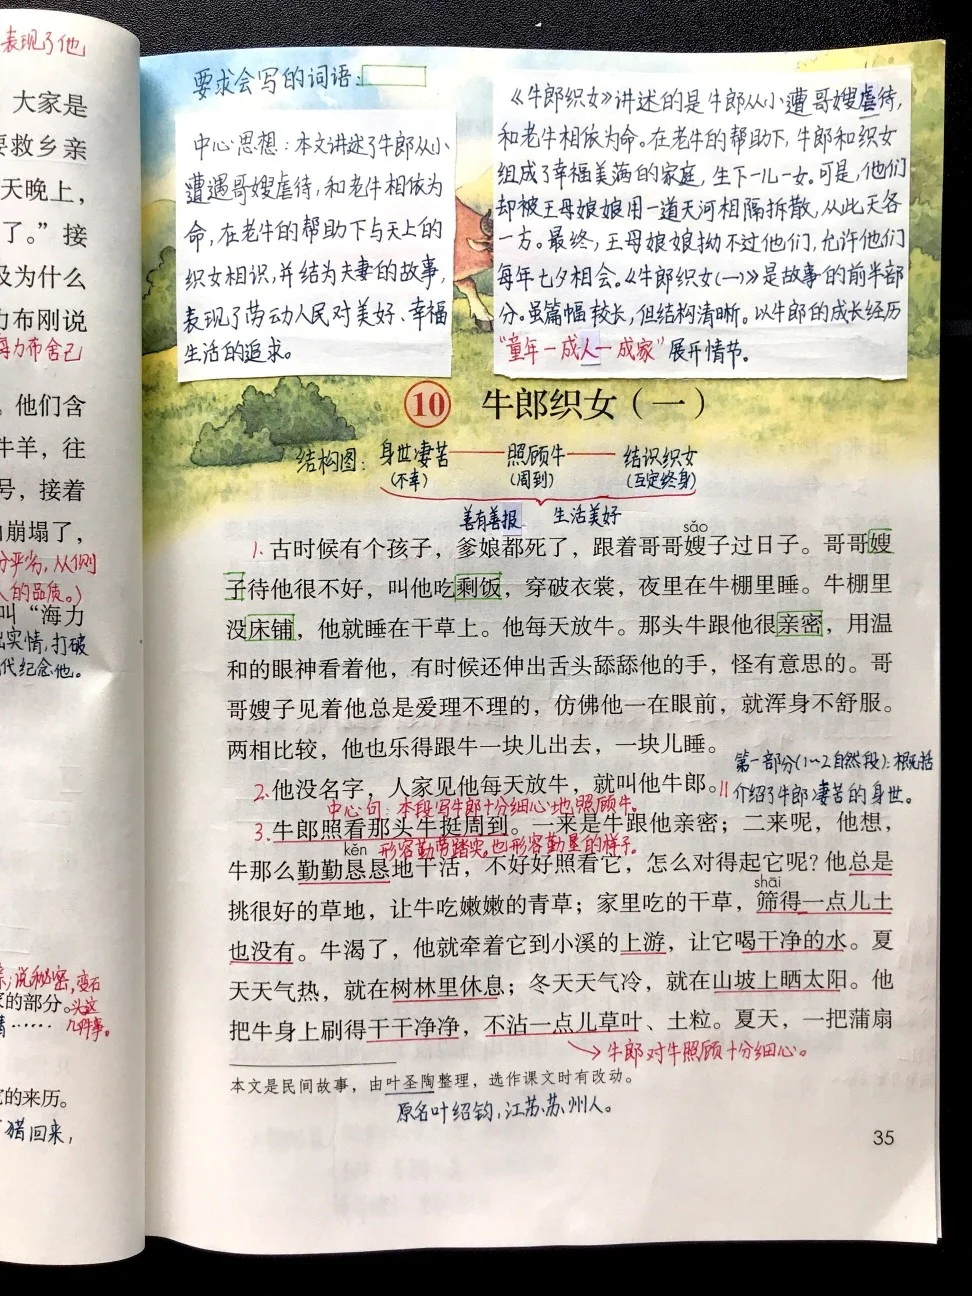 表现了他
大家是
要救乡亲
天晚上，
了。”接
及为什么
力布刚说
海力布舍己
他们含
牛羊，往
号，接着
山崩塌了，
叫“海力
出实情，打破
代纪念他。
说秘密，变石
家的部分。
头这
几件事。
的来历。
猎回来，
要求会写的词语：
中心思想：本文讲述了牛郎从小
遭遇哥嫂虐待，和老牛相依为
命，在老牛的帮助下与天上的
织女相识，并结为夫妻的故事，
表现了劳动人民对美好、幸福
生活的追求。
《牛郎织女》讲述的是牛郎从小遭哥嫂虐待，
和老牛相依为命。在老牛的帮助下，牛郎和织女
组成了幸福美满的家庭，生下一儿一女。可是，他们
却被王母娘娘用一道天河相隔拆散，从此天各
一方。最终，王母娘娘拗不过他们，允许他们
每年七夕相会。《牛郎织女(一)》是故事的前半部
分。虽篇幅较长，但结构清晰。以牛郎的成长经历
“童年—成人—成家”展开情节。
10 牛郎织女（一）
结构图：身世凄苦——照顾牛——结识织女
(不幸) (周到) (互定终身)
善有善报 生活美好
sǎo
1.古时候有个孩子，爹娘都死了，跟着哥哥嫂子过日子。哥哥嫂
子待他很不好，叫他吃剩饭，穿破衣裳，夜里在牛棚里睡。牛棚里
没床铺，他就睡在干草上。他每天放牛。那头牛跟他很亲密，用温
和的眼神看着他，有时候还伸出舌头舔舔他的手，怪有意思的。哥
哥嫂子见着他总是爱理不理的，仿佛他一在眼前，就浑身不舒服。
两相比较，他也乐得跟牛一块儿出去，一块儿睡。
第一部分(1~2自然段)：概括
2.他没名字，人家见他每天放牛，就叫他牛郎。
介绍了牛郎凄苦的身世。
中心句：本段写牛郎十分细心地照顾牛。
3.牛郎照看那头牛挺周到。一来是牛跟他亲密；二来呢，他想，
kěn 形容勤劳踏实，也形容勤恳的样子。
牛那么勤勤恳恳地干活，不好好照看它，怎么对得起它呢？他总是
shāi
挑很好的草地，让牛吃嫩嫩的青草；家里吃的干草，筛得一点儿土
也没有。牛渴了，他就牵着它到小溪的上游，让它喝干净的水。夏
天天气热，就在树林里休息；冬天天气冷，就在山坡上晒太阳。他
把牛身上刷得干干净净，不沾一点儿草叶、土粒。夏天，一把蒲扇
牛郎对牛照顾十分细心。
本文是民间故事，由叶圣陶整理，选作课文时有改动。
原名叶绍钧，江苏苏州人。
35